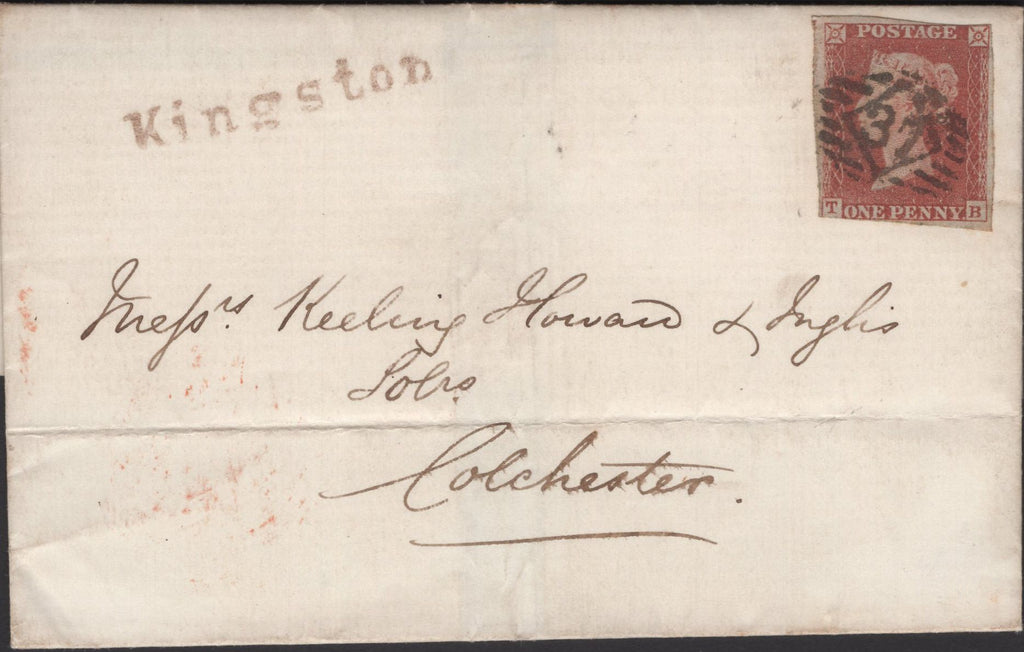 Kingston
POSTAGE
37
T ONE PENNY B
Messrs. Keeling Howard & Inglis
Solrs
Colchester.